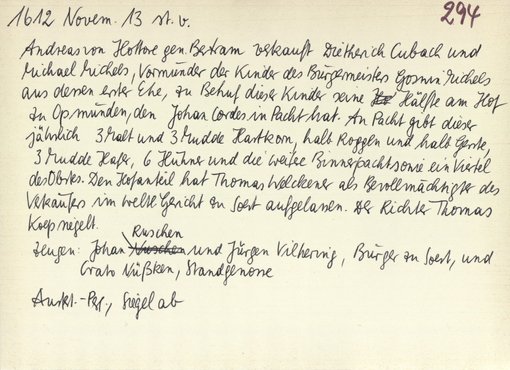 1612 Novem. 13 st. v.
294
Andreas von Hottore gen. Bertram verkauft Dietherich Cubach und
Michael Michels, Vormünder der Kinder des Bürgermeisters Goswin Michels
aus dessen erster Ehe, zu Behuf dieser Kinder seine Hälfte am Hof
zu Opmünden, den Johan Cordes in Pacht hat. An Pacht gibt dieser
jährlich 3 Malt und 3 Mudde Hartkorn, halb Roggen und halb Gerste,
3 Mudde Hafer, 6 Hühner und die weitze Binnerpacht sowie ein Viertel
des Obstes. Den Hofanteil hat Thomas Welckener als Bevollmächtigter des
Verkäufers im weltl. Gericht zu Soest aufgelassen. Der Richter Thomas
Koep siegelt.
Zeugen: Johan Ruschen und Jürgen Vilhering, Bürger zu Soest, und
Crato Nüßken, Standgenosse
Ausf.-Pgt., Siegel ab